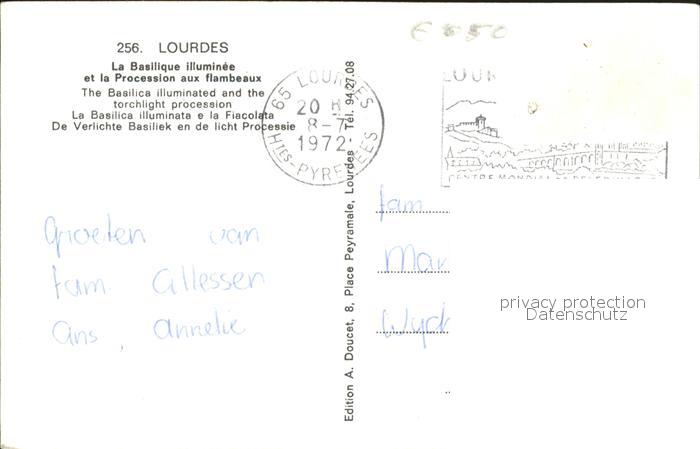 256. LOURDES
La Basilique illuminée
et la Procession aux flambeaux
The Basilica illuminated and the
torchlight procession
La Basilica illuminata e la Fiacolata
De Verlichte Basiliek en de licht Processie
65 LOURDES
20 H
8-7
1972
HTES-PYRENEES
LOUR
CENTRE MONDIAL
Edition A. Doucet, 8, Place Peyramale, Lourdes Tél. 94.27.08
Groeten van
fam. Allessen
Ans, Annelie
fam
Mar
Wyck
privacy protection
Datenschutz